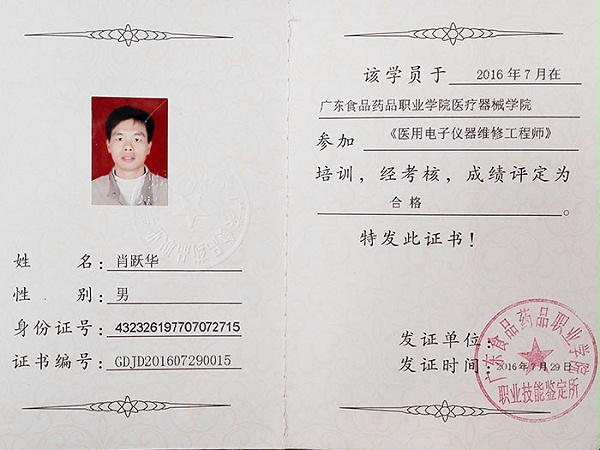 姓 名：肖跃华
性 别：男
身份证号：432326197707072715
证书编号：GDJD201607290015
该学员于 2016 年 7 月在
广东食品药品职业学院医疗器械学院
参加 《医用电子仪器维修工程师》
培训，经考核，成绩评定为
合 格 。
特发此证书！
发证单位：
发证时间：2016 年 7 月 29 日
广东食品药品职业学院
职业技能鉴定所